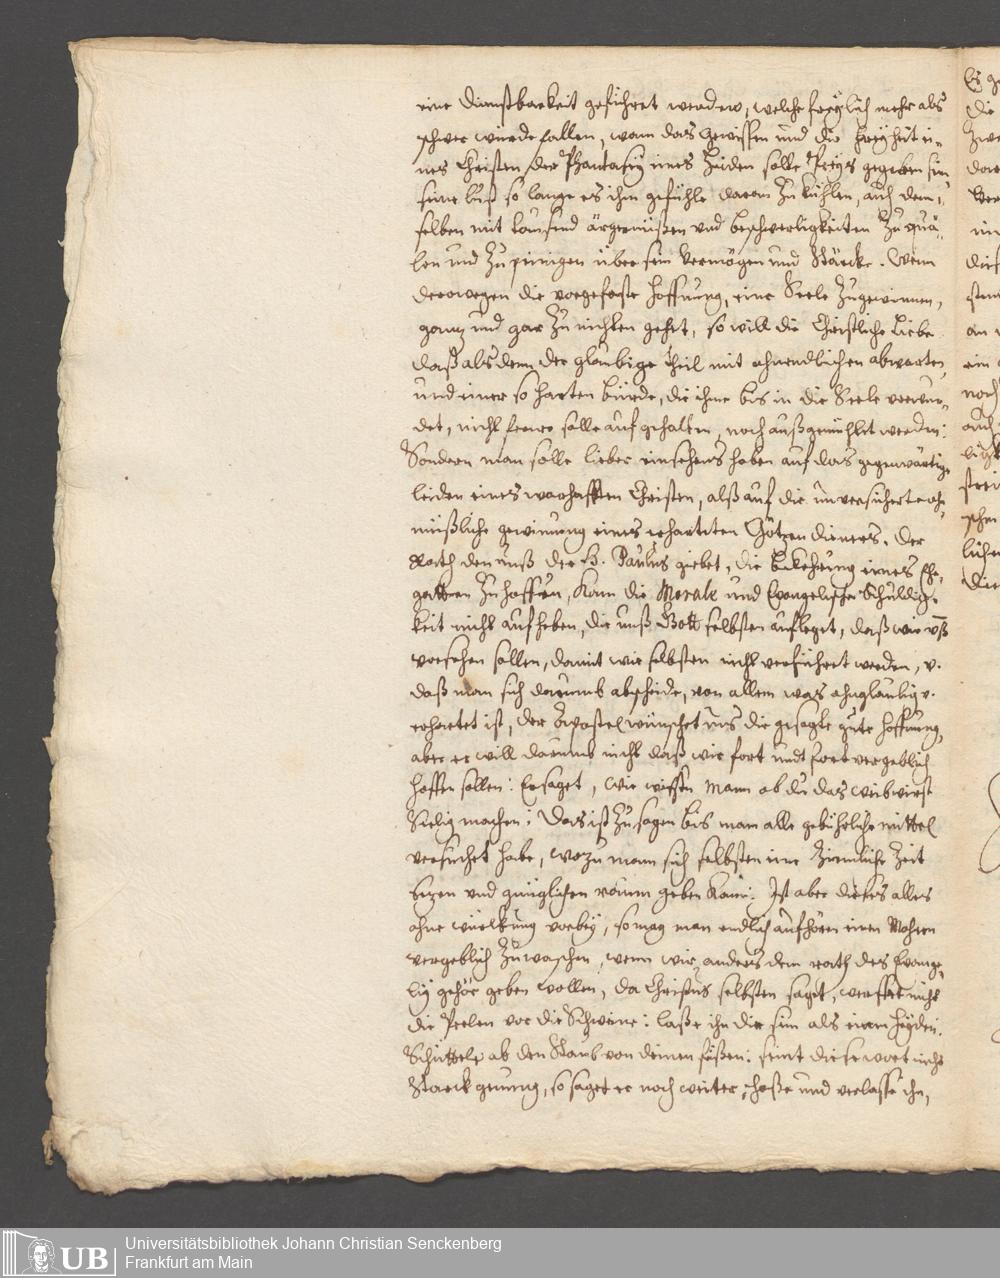 eine Dienstbarkeit geführet werden, welche freylich mehr als
schwer würde fallen, wann das gewissen und die Freyheit ei-
nes Christen der Phantasey eines Heiden solle Preys gegeben sein
seine lust so lange es ihm gefühle daran zu kühlen, auch dem-
selben mit tausend ärgernüßen und beschwerligkeiten zu quä-
len und zu peinigen über sein Vermögen und Stärcke. Wenn
derowegen die vorgefaste hoffnung, eine Seele zugewinnen,
gantz und gar zu nichten gehet, so will die Christliche Liebe
daß alsdenn der glaubige theil mit ohnendlichen abwarten,
und einer so harten bürde, die ihme bis in die Seele verwun-
det, nicht ferner solle aufgehalten, noch außgemühlet werden:
Sondern man solle lieber einsehens haben auf das gegenwärtige
leiden eines warhafften Christen, alß auf die unversicherte oh-
müßliche gewinnung eines erharteten Götzen dieners. Der
Rath den unß der H. Paulus giebet, die bekehrung eines Ehe-
gatten zu hoffen, kann die Morale und Evangelische Schuldig-
keit nicht aufheben, die unß Gott selbsten aufleget, daß wir unß
vorsehen sollen, damit wir selbsten nicht verführet werden, v.
daß man sich darumb abscheide, von allem was ohnglaubig v.
erhartet ist, der Apostel wünschet uns die gesagte gute hoffnung,
aber er will darumb nicht daß wir fort undt fort vergeblich
hoffen sollen: Er saget, wie wissen Mann ob du das weib wirst
Seelig machen: Das ist zu sagen bis man alle gebührliche mittel
versuchet habe, wozu man sich selbsten eine ziemliche Zeit
sezen und gnüglichen raum geben kann: Ist aber dieses alles
ohne würckung vorbey, so mag man endlich aufhören einen Mohren
vergeblich zuwaschen, wenn wir anders dem rath des Evange-
lij gehör geben wollen, da Christus selbsten saget, werffet nicht
die Perlen vor die Schweine: lasse ihn dir sein als einen Heyden:
Schüttele ab den Staub von deinen füßen: seint diese wort nicht
Starck genung, so saget er noch weiter: haße und verlasse ihn,
Universitätsbibliothek Johann Christian Senckenberg
Frankfurt am Main
UB